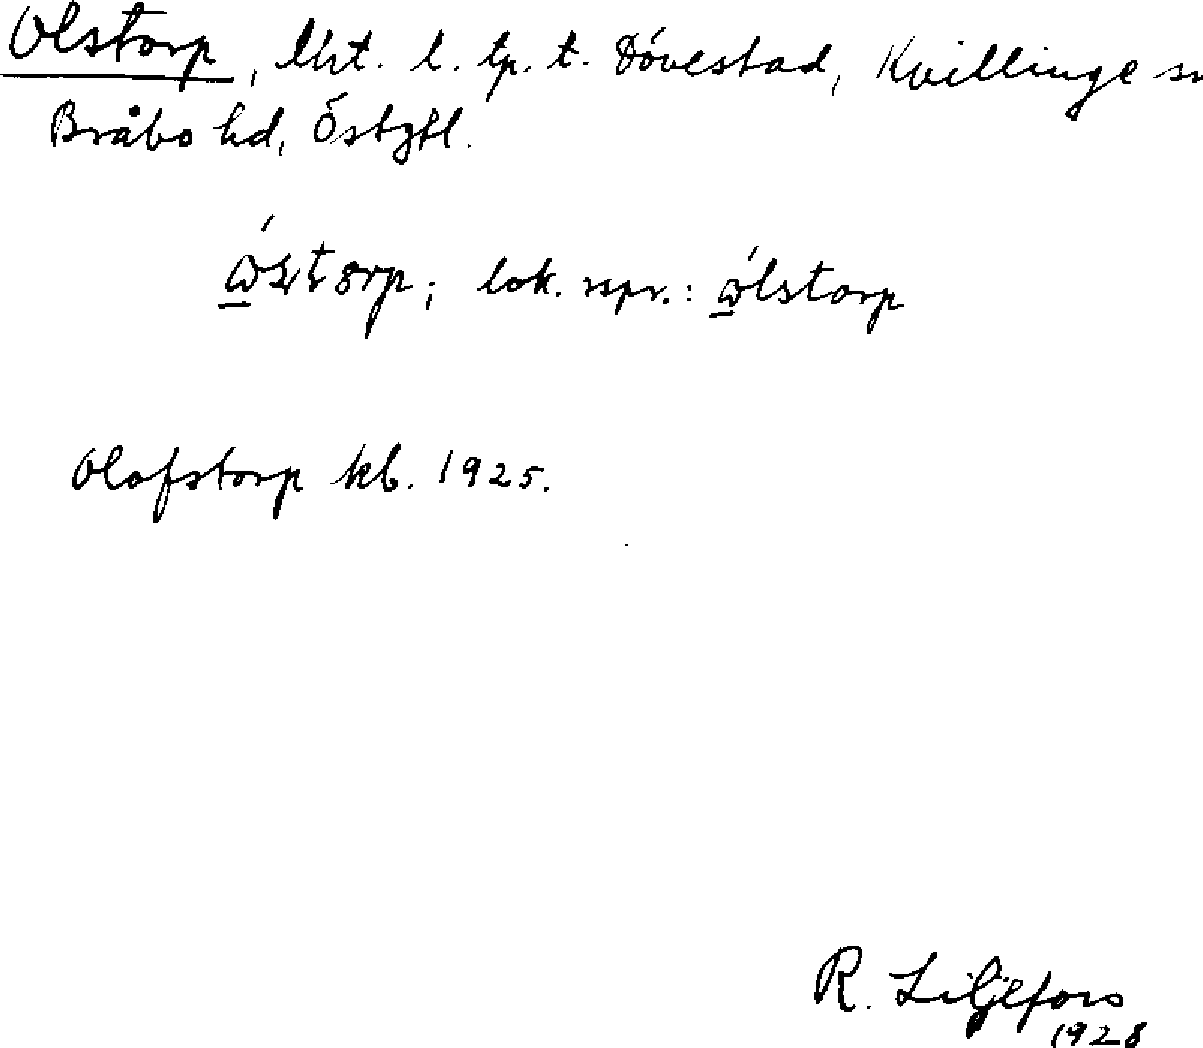 Olstorp, lht. l. tp. t. Dövestad, Kvillinge sn
Bråbo hd, Östgtl.
lok. rspr.: ώ̲lstorp
Olofstorp kb. 1925.
R. Liljefors
1928